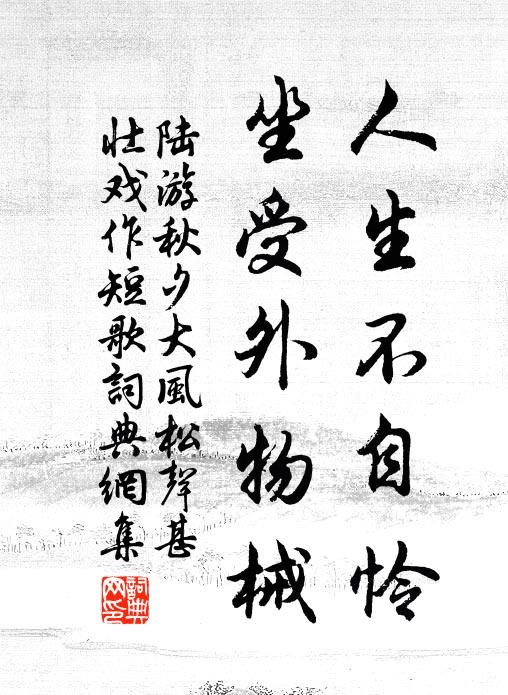 人生不自怜
坐受外物械
陆游秋夕大風松聲甚
壮戏作短歌詞典網集
詞典网印